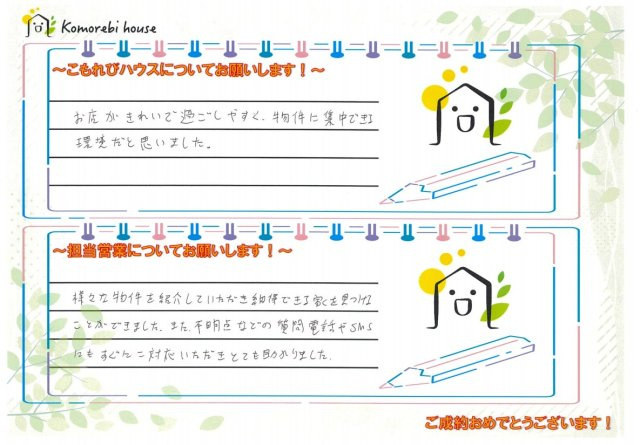 Komorebi house
～こもれびハウスについてお願いします！～
お店がきれいで過ごしやすく、物件に集中できる
環境だと思いました。
～担当営業についてお願いします！～
様々な物件を紹介していただき納得できる家を見つける
ことができました。また、不明点などの質問電話やSMS
にもすぐにご対応いただきとても助かりました。
ご成約おめでとうございます！